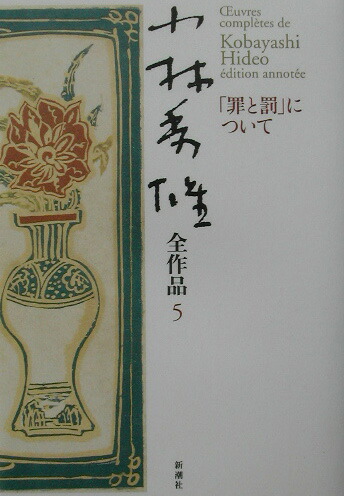 Œuvres
complètes de
Kobayashi
Hideo
édition annotée
「罪と罰」に
ついて
小林秀雄
全作品 5
新潮社